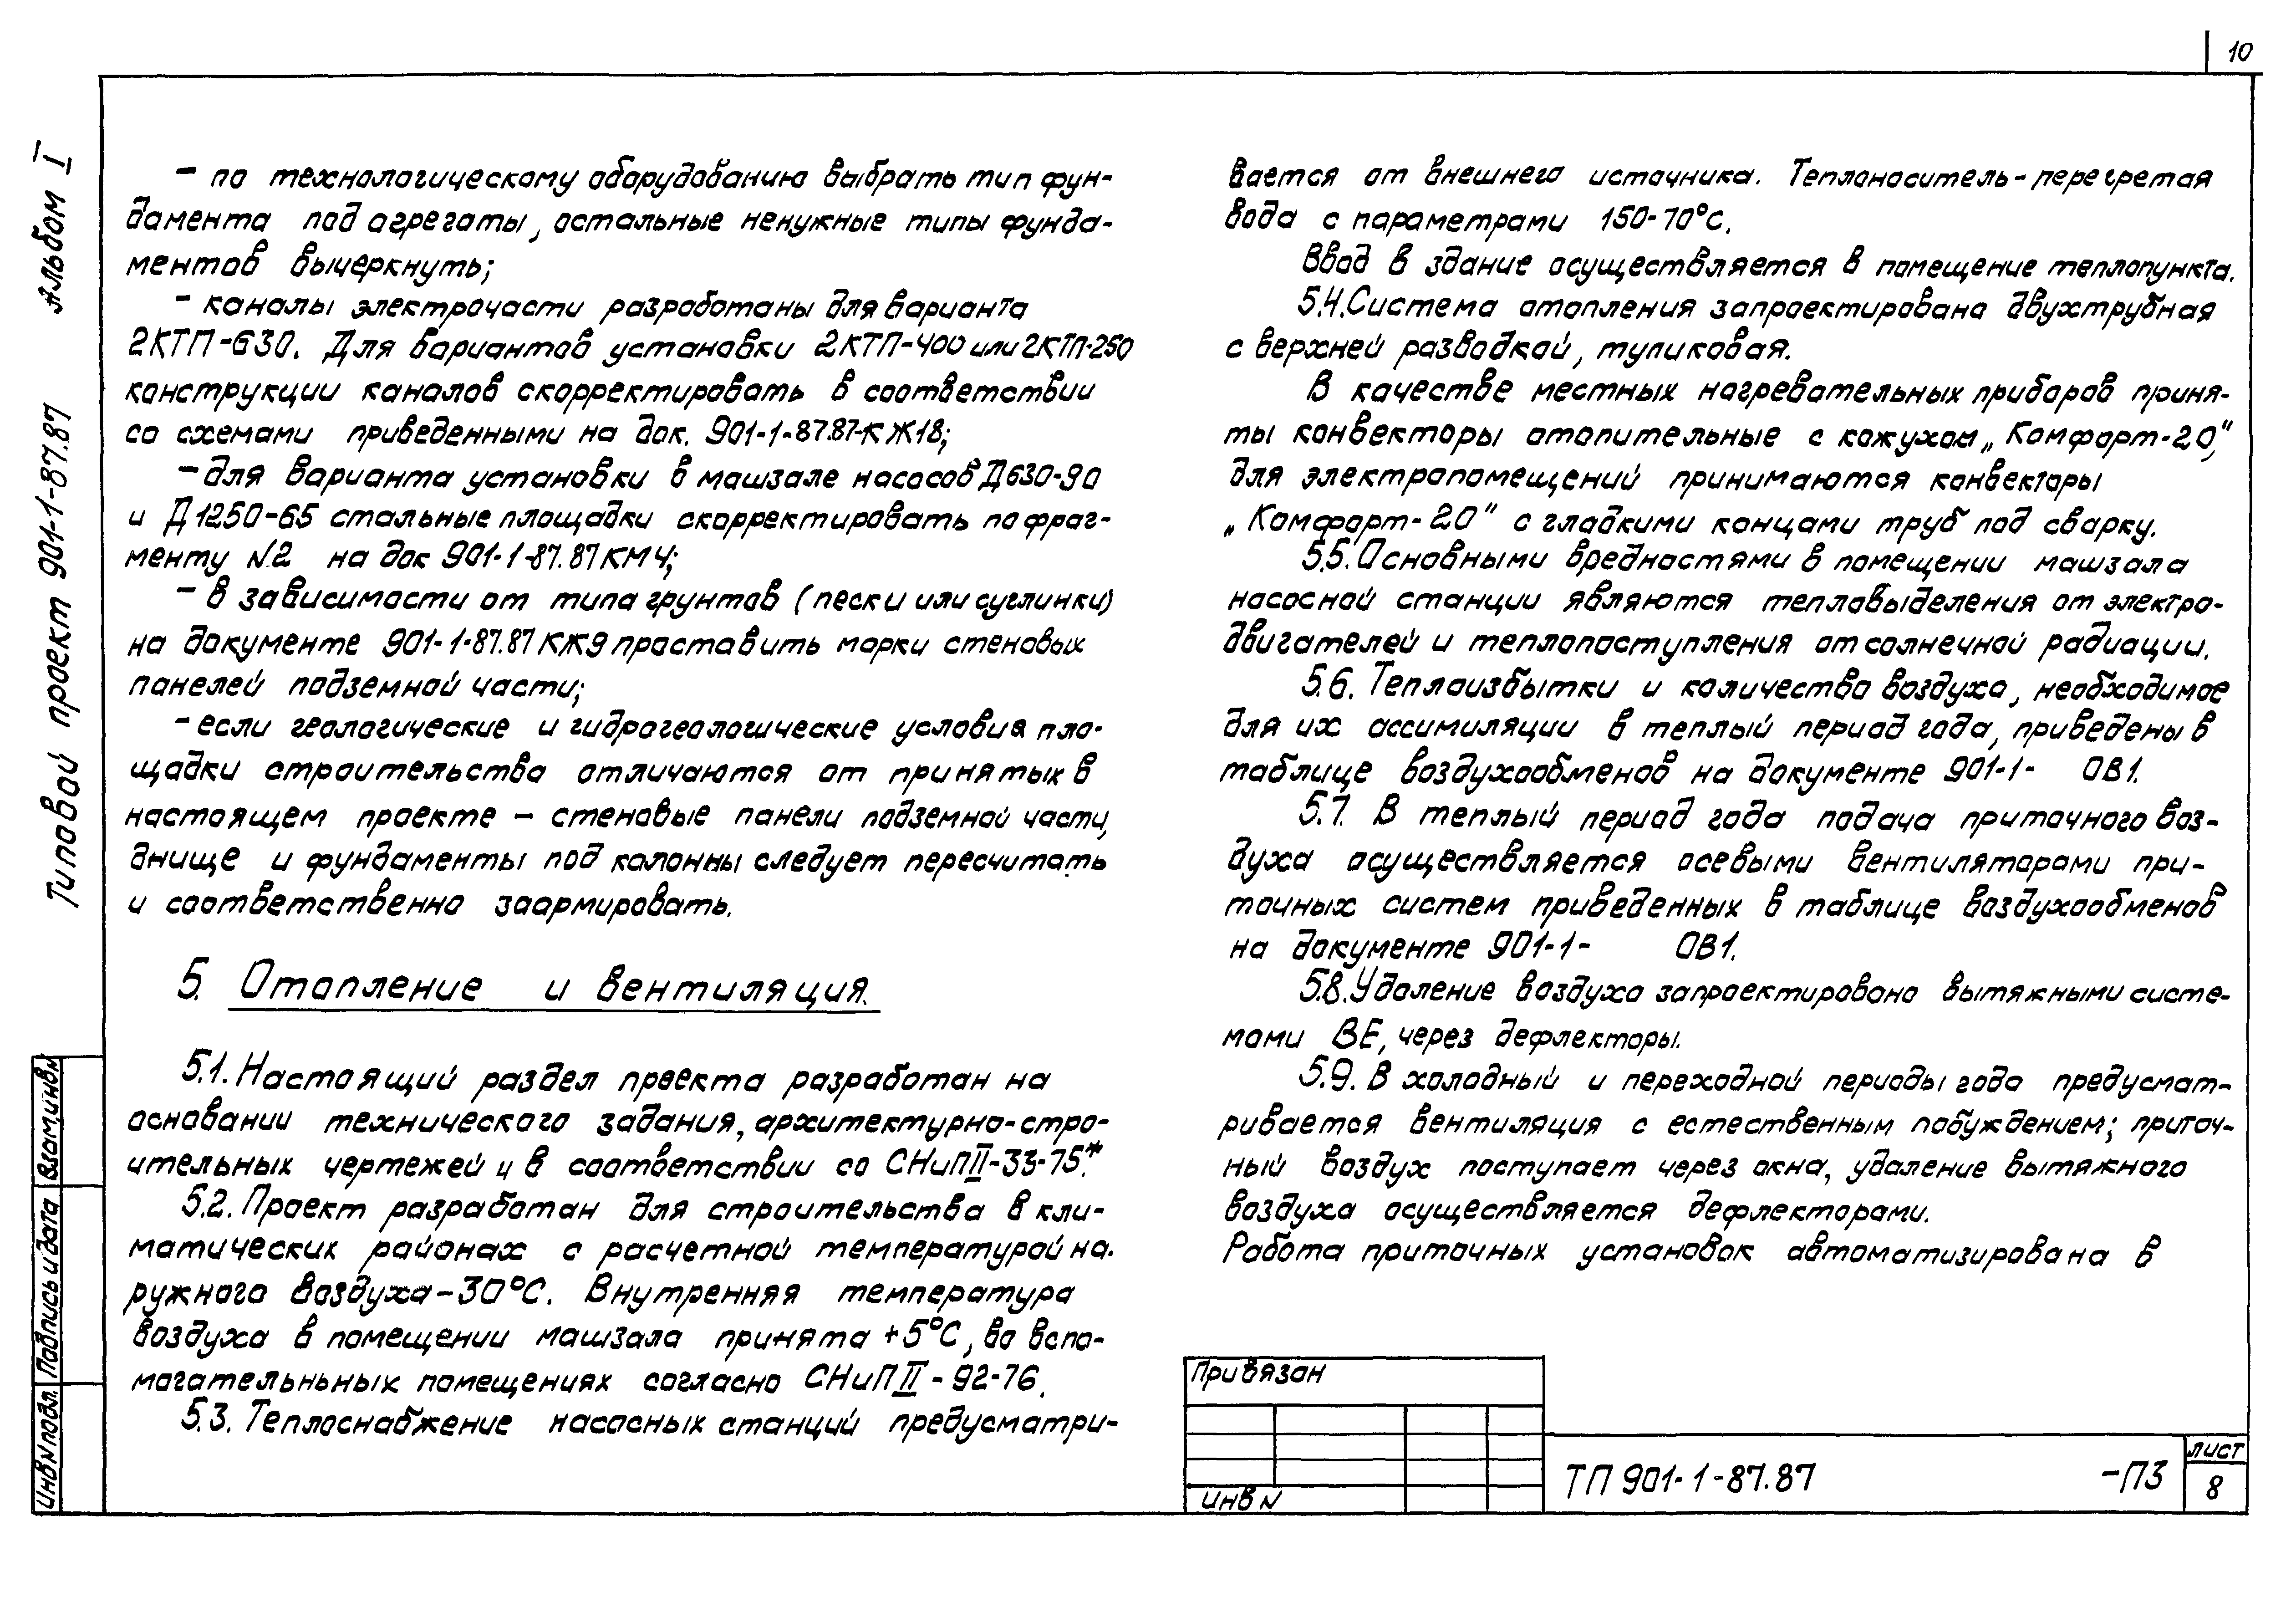 10
Типовой проект 901-1-87.87 Альбом I
– по технологическому оборудованию выбрать тип фун-
дамента под агрегаты, остальные ненужные типы фунда-
ментов вычеркнуть;
– каналы электрочасти разработаны для варианта
2КТП-630. Для вариантов установки 2КТП-400 или 2КТП-250
конструкции каналов скорректировать в соответствии
со схемами приведенными на док. 901-1-87.87-КЖ18;
– для варианта установки в машзале насосов Д630-90
и Д1250-65 стальные площадки скорректировать по фраг-
менту N2 на док 901-1-87.87 КМ4;
– в зависимости от типа грунтов (пески или суглинки)
на документе 901-1-87.87 КЖ9 проставить марки стеновых
панелей подземной части;
– если геологические и гидрогеологические условия пло-
щадки строительства отличаются от принятых в
настоящем проекте – стеновые панели подземной части,
днище и фундаменты под колонны следует пересчитать
и соответственно заармировать.
5. Отопление и вентиляция.
5.1. Настоящий раздел проекта разработан на
основании технического задания, архитектурно-стро-
ительных чертежей и в соответствии со СНиП II-33-75*.
5.2. Проект разработан для строительства в кли-
матических районах с расчетной температурой на-
ружного воздуха –30°С. Внутренняя температура
воздуха в помещении машзала принята +5°С, во вспо-
могательньных помещениях согласно СНиП II-92-76.
5.3. Теплоснабжение насосных станций предусматри-
вается от внешнего источника. Теплоноситель-перегретая
вода с параметрами 150-70°С.
Ввод в здание осуществляется в помещение теплопункта.
5.4. Система отопления запроектирована двухтрубная
с верхней разводкой, тупиковая.
В качестве местных нагревательных приборов приня-
ты конвекторы отопительные с кожухом „Комфорт-20",
для электропомещений принимаются конвекторы
„Комфорт-20" с гладкими концами труб под сварку.
5.5. Основными вредностями в помещении машзала
насосной станции являются тепловыделения от электро-
двигателей и теплопоступления от солнечной радиации.
5.6. Теплоизбытки и количество воздуха, необходимое
для их ассимиляции в теплый период года, приведены в
таблице воздухообменов на документе 901-1- ОВ1.
5.7. В теплый период года подача приточного воз-
духа осуществляется осевыми вентиляторами при-
точных систем приведенных в таблице воздухообменов
на документе 901-1- ОВ1.
5.8. Удаление воздуха запроектировано вытяжными систе-
мами ВЕ, через дефлекторы.
5.9. В холодный и переходной периоды года предусмат-
ривается вентиляция с естественным побуждением; приточ-
ный воздух поступает через окна, удаление вытяжного
воздуха осуществляется дефлекторами.
Работа приточных установок автоматизирована в
Взам.инв.N
Подпись и дата
Инв.N подл.
Привязан
Инв N
ТП 901-1-87.87 -ПЗ
лист
8